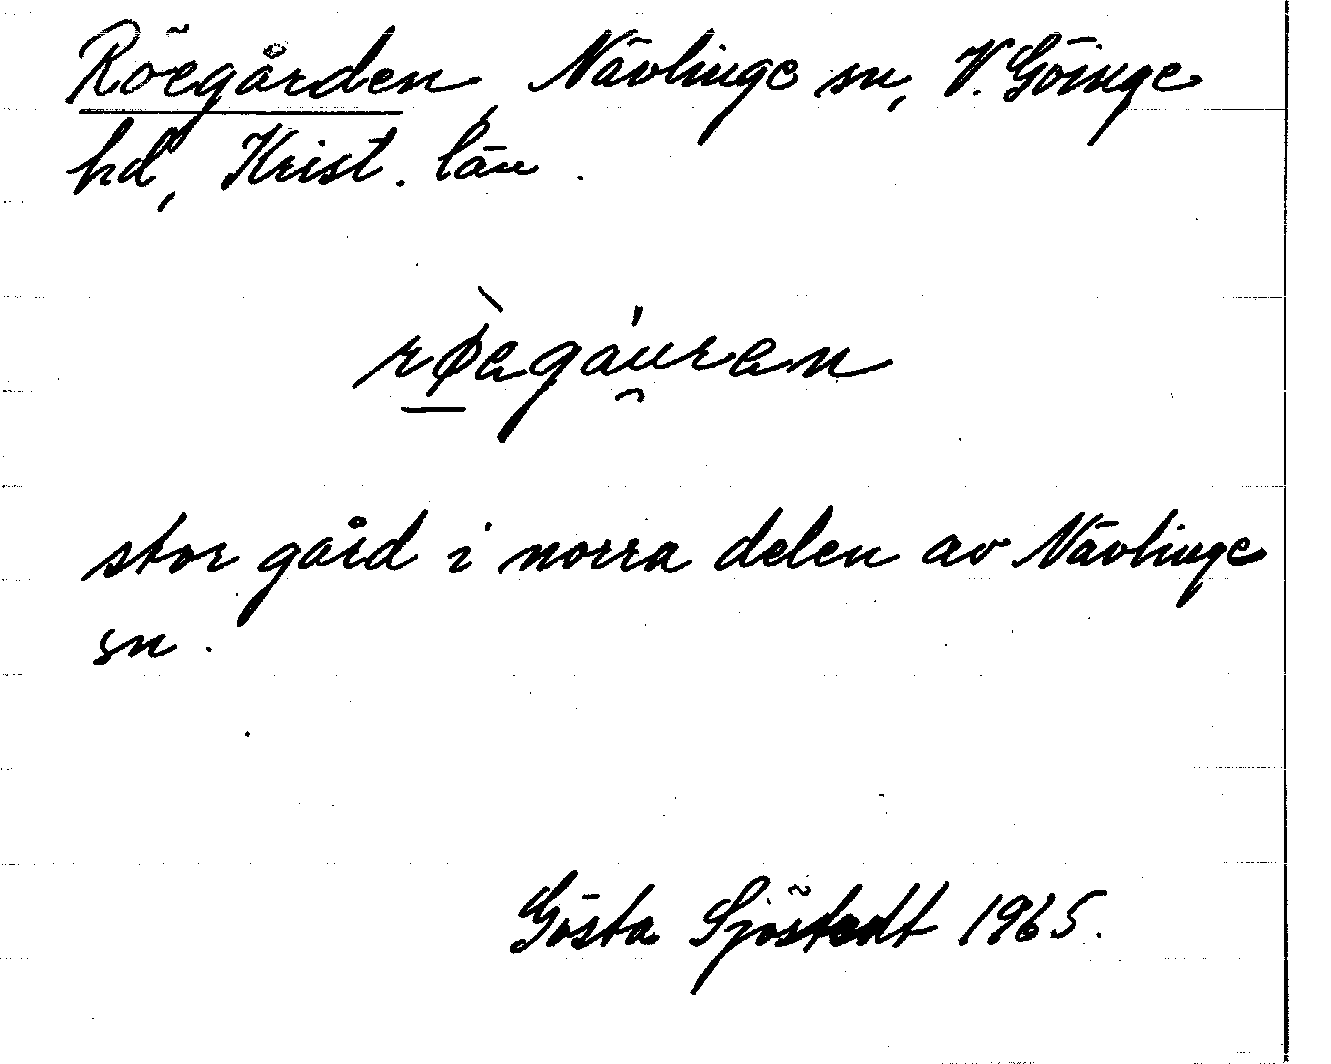 Röegården, Nävlinge sn, V. Göinge
hd, Krist. län.
rø̀egáu̯ren
stor gård i norra delen av Nävlinge
sn.
Gösta Sjöstedt 1965.